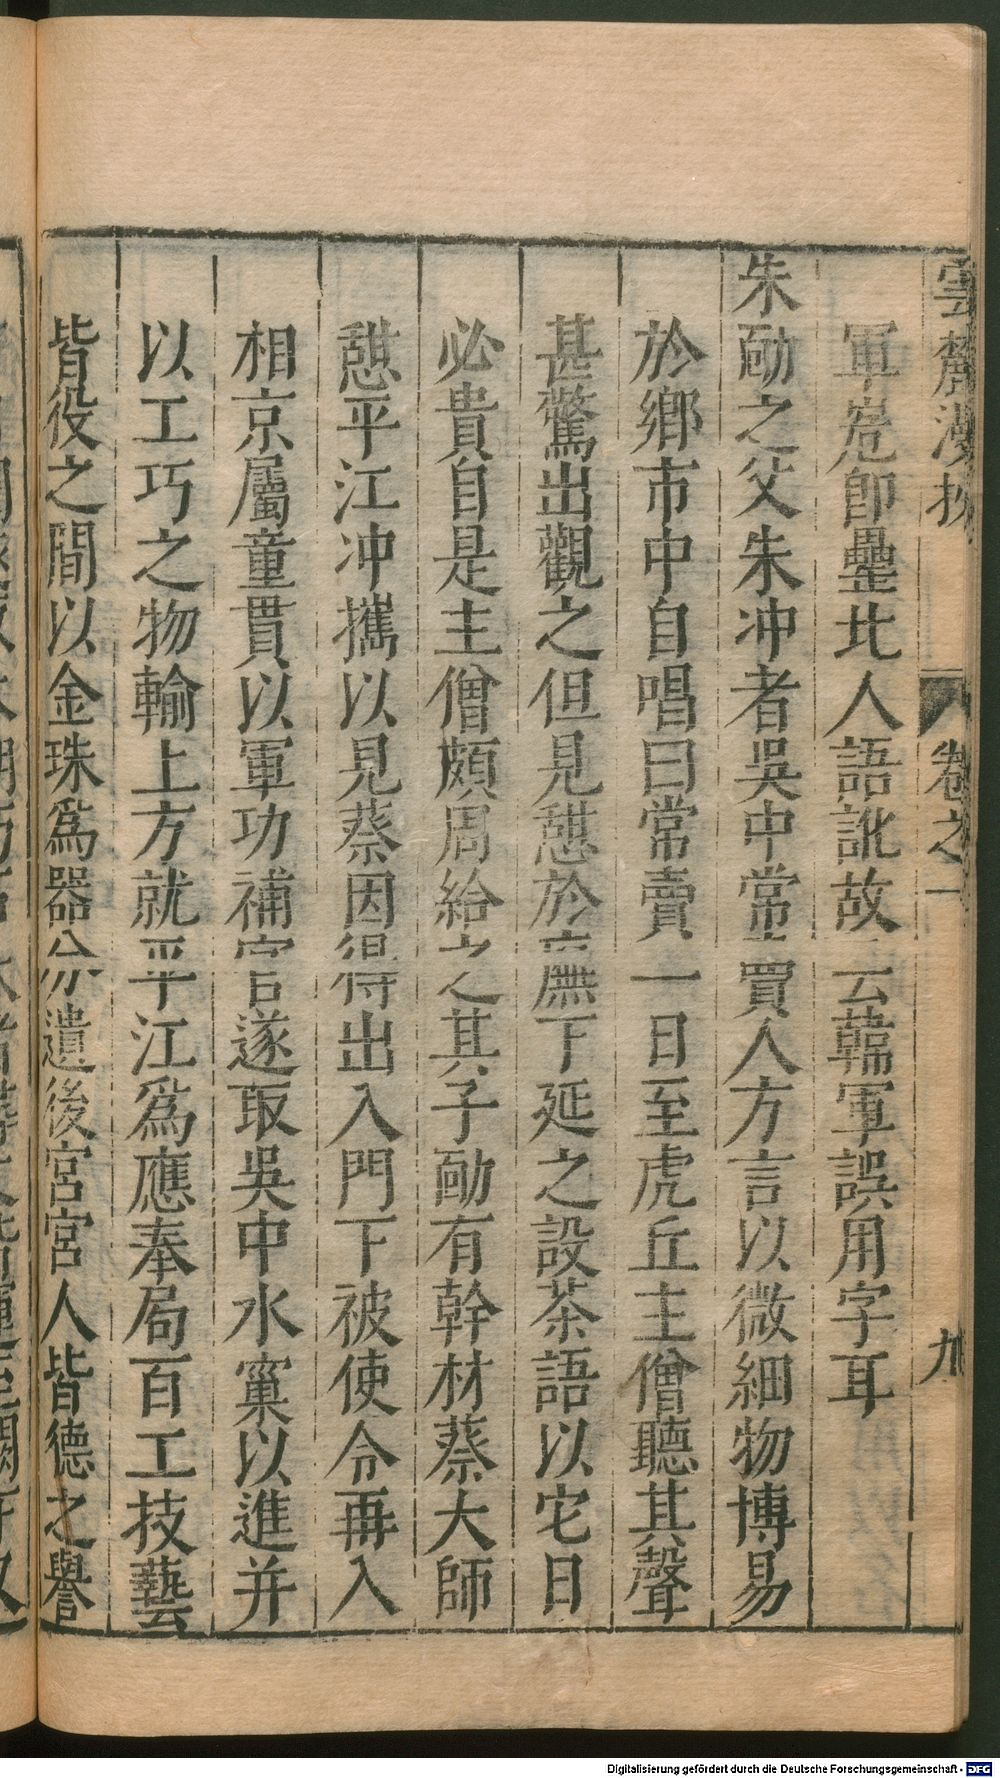 雲麓漫抄 卷之一 九
軍寨即壘北人語訛故云韓軍誤用字耳
朱勔之父朱冲者吳中常賣人方言以微細物博易
於鄉市中自唱曰常賣一日至虎丘主僧聽其聲
甚驚出觀之但見憇於廡下延之設茶語以它日
必貴自是主僧頗周給之其子勔有幹材蔡大師
憇平江冲攜以見蔡因得出入門下被使令再入
相京屬童貫以軍功補官遂取吳中水窠以進并
以工巧之物輸上方就平江爲應奉局百工技藝
皆役之間以金珠爲器分遺後宮宮人皆德之譽
Digitalisierung gefördert durch die Deutsche Forschungsgemeinschaft - DFG